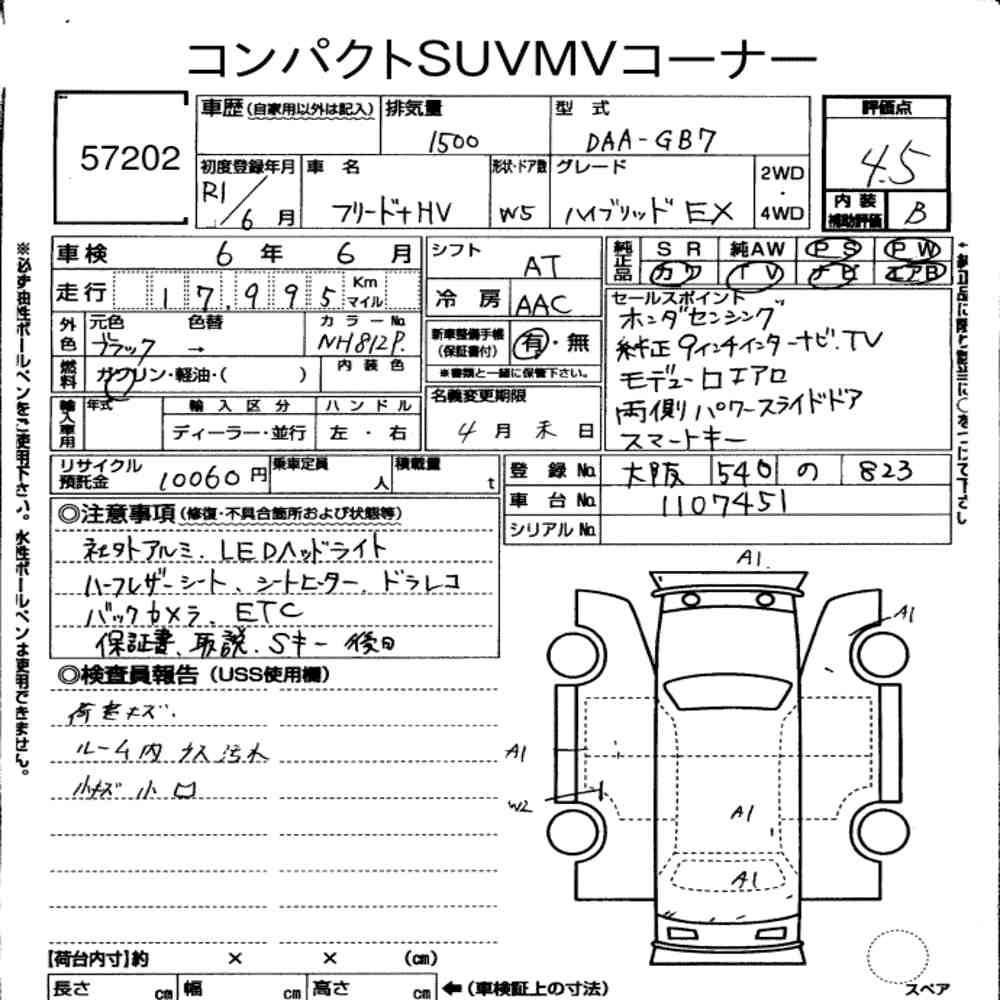 コンパクトSUVMVコーナー
57202
車歴(自家用以外は記入)
排気量
1500
型式
DAA-GB7
評価点
4.5
初度登録年月
R1/6月
車名
フリード+HV
形状・ドア数
W5
グレード
ハイブリッド EX
2WD
・
4WD
内装
補助評価
B
車検 6年 6月
シフト
AT
純正品
SR 純AW PS PW
カワ TV ナビ エアB
走行 17,995 Km マイル
冷房 AAC
セールスポイント
ホンダセンシング
純正9インチインターナビ.TV
モデューロエアロ
両側パワースライドドア
スマートキー
外色
元色 色替
ブラック →
カラーNo.
NH812P.
新車整備手帳
(保証書付)
有・無
※書類と一緒に保管下さい。
燃料
ガソリン・軽油・( )
内装色
輸入車用
年式
輸入区分
ディーラー・並行
ハンドル
左・右
名義変更期限
4月末日
リサイクル
預託金
10060円
乗車定員
人
積載量
t
登録No. 大阪 540 の 823
車台No. 1107451
シリアルNo.
◎注意事項(修復・不具合箇所および状態等)
社外アルミ.LEDヘッドライト
ハーフレザーシート、シートヒーター、ドラレコ
バックカメラ.ETC
保証書、取説、Sキー後日
◎検査員報告(USS使用欄)
ルーム内
小キズ小凹
A1.
A1
A1
W2
A1
A1
[荷台内寸]約 × × (cm)
長さ cm 幅 cm 高さ cm
←(車検証上の寸法)
スペア
※必ず油性ボールペンをご使用下さい。水性ボールペンは使用できません。